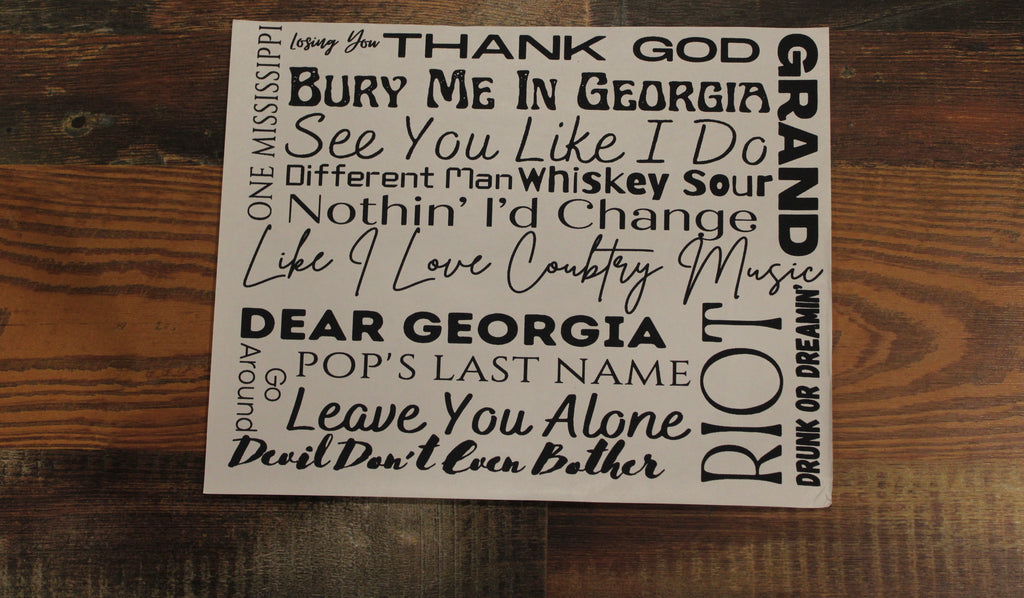 ONE MISSISSIPPI
Losing You
THANK GOD
BURY ME IN GEORGIA
See You Like I Do
Different Man
Whiskey Sour
Nothin' I'd Change
Like I Love Coubtry Music
GRAND
DEAR GEORGIA
POP'S LAST NAME
Go
Around
Leave You Alone
Devil Don't Even Bother
RIOT
DRUNK OR DREAMIN'